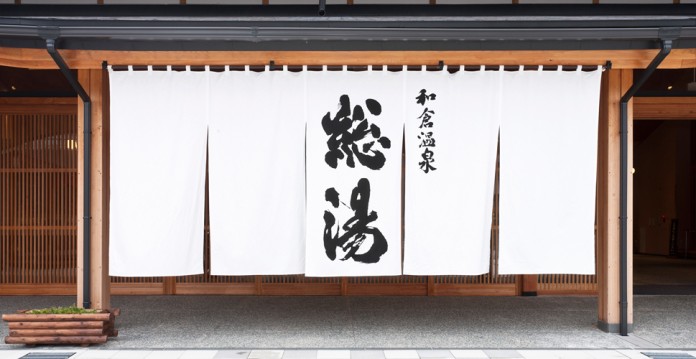 和倉温泉
総湯